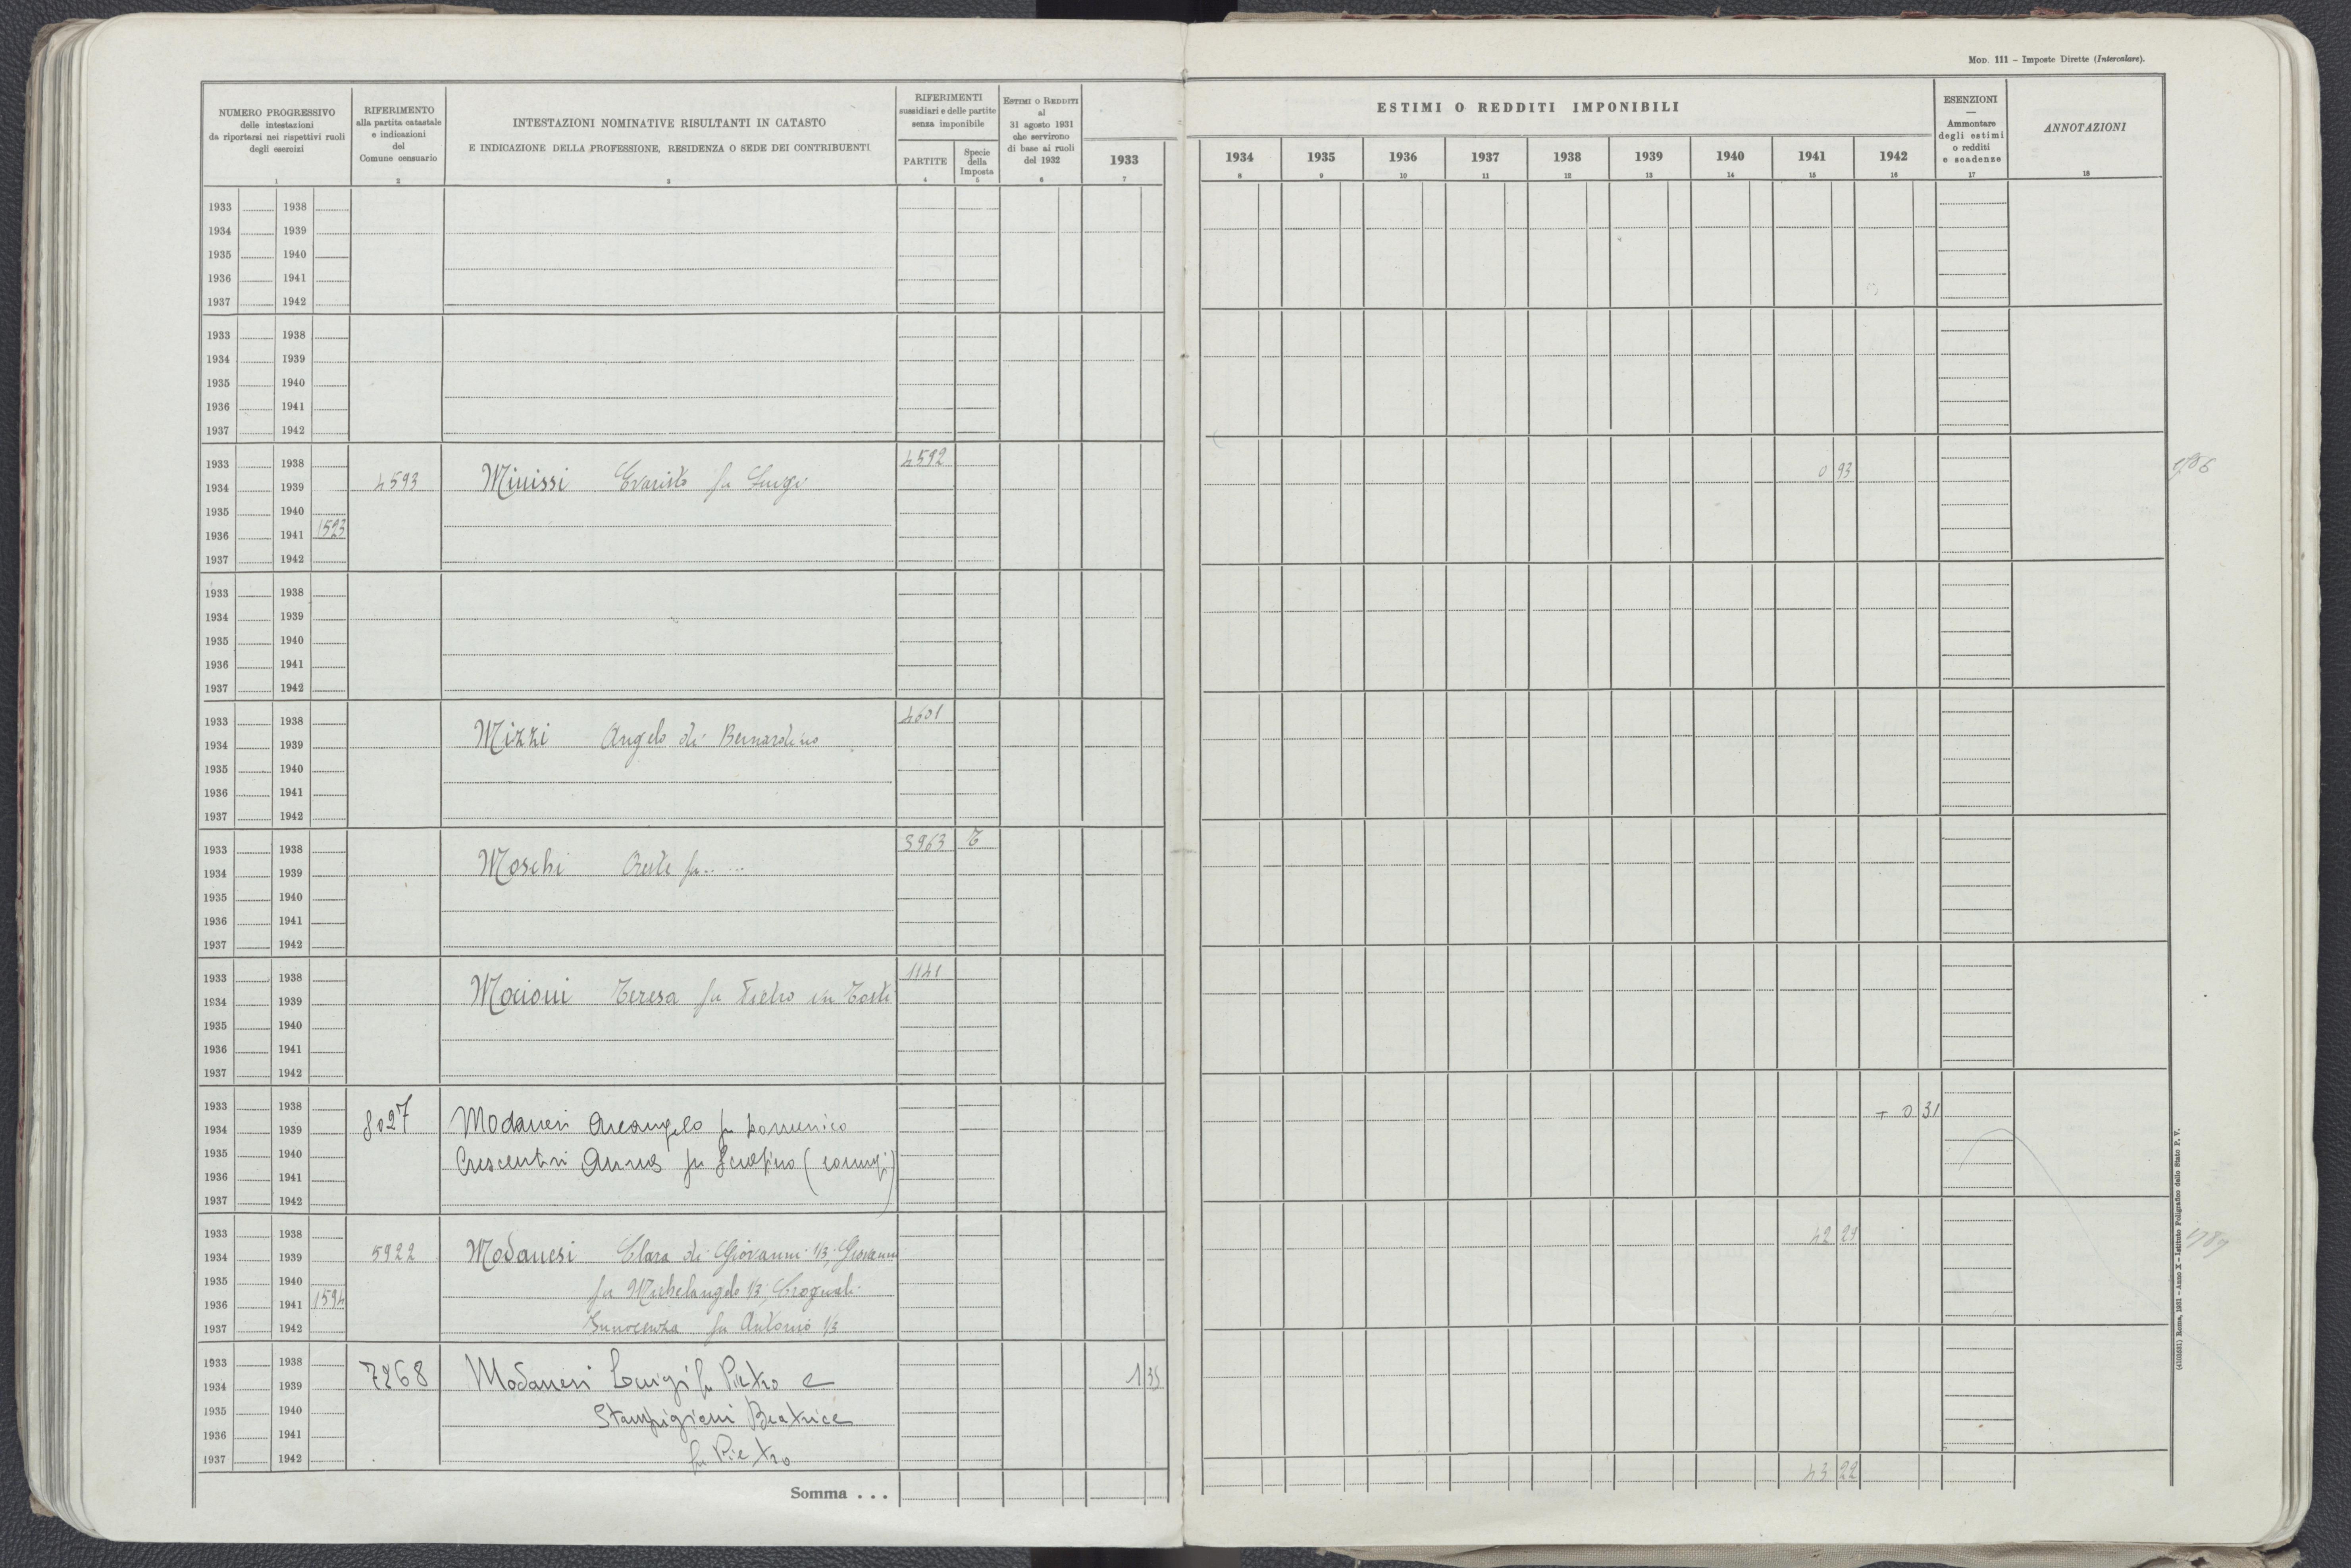 Mod. 111 - Imposte Dirette (Intercalare).
NUMERO PROGRESSIVO
delle intestazioni
da riportarsi nei rispettivi ruoli
degli esercizi
1
RIFERIMENTO
alla partita catastale
e indicazioni
del
Comune censuario
2
INTESTAZIONI NOMINATIVE RISULTANTI IN CATASTO
E INDICAZIONE DELLA PROFESSIONE, RESIDENZA O SEDE DEI CONTRIBUENTI
3
RIFERIMENTI
sussidiari e delle partite
senza imponibile
PARTITE
4
Specie
della
Imposta
5
Estimi o Redditi
al
31 agosto 1931
che servirono
di base ai ruoli
del 1932
6
1933
7
ESTIMI O REDDITI IMPONIBILI
1934 1935 1936 1937 1938 1939 1940 1941 1942
8 9 10 11 12 13 14 15 16
ESENZIONI
Ammontare
degli estimi
o redditi
e scadenze
17
ANNOTAZIONI
18
1933 1938
1934 1939
1935 1940
1936 1941
1937 1942
1933 1938
1934 1939
1935 1940
1936 1941
1937 1942
1933 1938 4592
1934 1939 4593 Minissi Evaristo fu Luigi 0 93
1935 1940
1936 1941 1523
1937 1942
1933 1938
1934 1939
1935 1940
1936 1941
1937 1942
1933 1938 4601
1934 1939 Mizzi Angelo di Bernardino
1935 1940
1936 1941
1937 1942
1933 1938 3963 T
1934 1939 Moschi Oreste fu.. ...
1935 1940
1936 1941
1937 1942
1933 1938 1141
1934 1939 Mocioni Teresa fu Pietro in Tosti
1935 1940
1936 1941
1937 1942
1933 1938 + 0 31
1934 1939 8027 Modanesi Arcangelo fu Domenico
1935 1940 Crescentini Anna fu Serafino (coniugi)
1936 1941
1937 1942
1933 1938 42 29
1934 1939 5922 Modanesi Clara di Giovanni 1/3, Giovanni
1935 1940 fu Michelangelo 1/3,
1936 1941 1594
1937 1942 Innocenza fu Antonio 1/3
1933 1938 7268 Modanesi Luigi fu Pietro e 1 35
1934 1939
1935 1940 Stampigioni Beatrice
1936 1941
1937 1942 fu Pietro
Somma . . . 43 22
(4103681) Roma, 1931 - Anno X - Istituto Poligrafico dello Stato P. V.